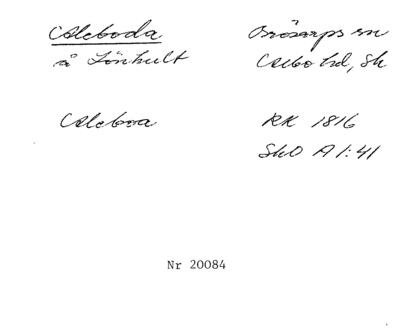 Aleboda Brösarps sn
å Lönhult Albo hd, Sk
Aleboa RK 1816
SkO A 1:41
Nr 20084